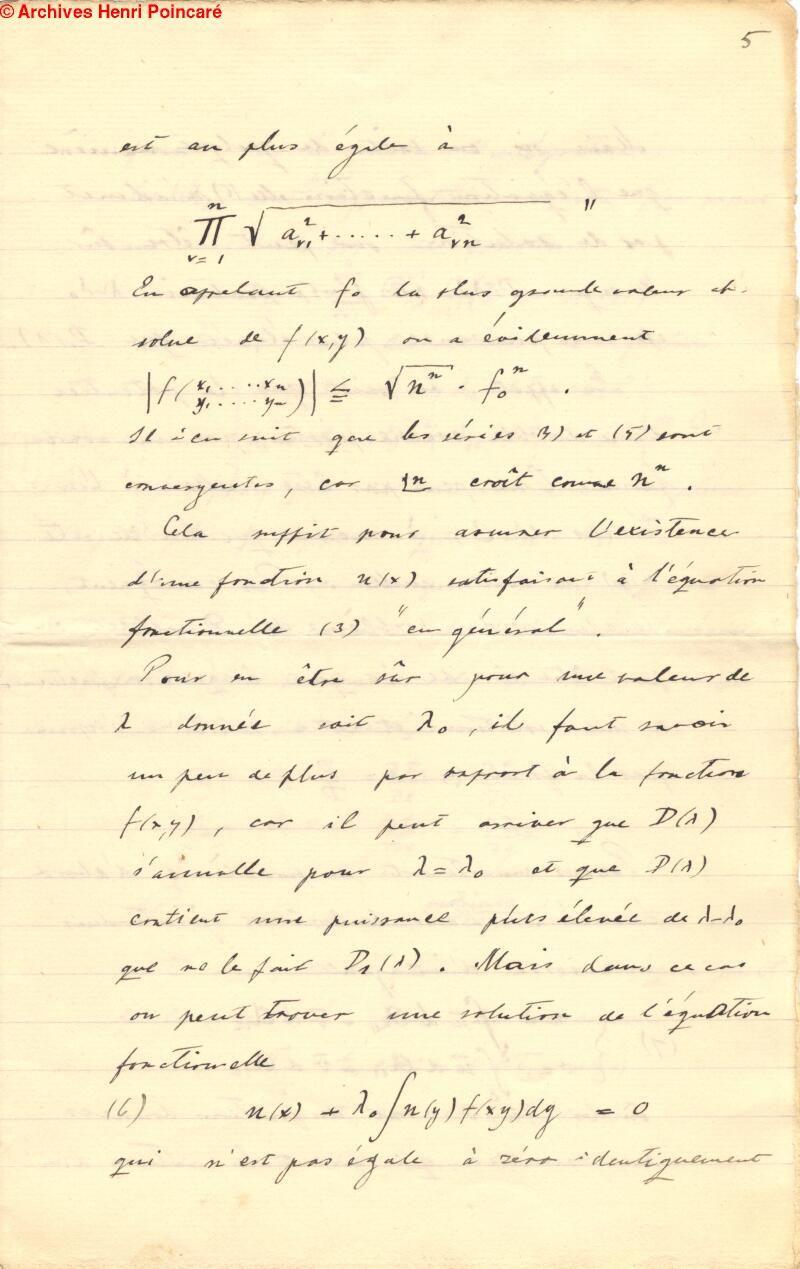 © Archives Henri Poincaré
5
est au plus égale à
n ∏ ν=1 √ a²ν1 + ..... + a²νn "
En appelant f₀ la plus grande valeur ab-
solue de f(x,y) on a évidemment
|f(x₁.....xₙ y₁.....yₙ)| ≦ √nⁿ · f₀ⁿ .
Il s'en suit que les séries 4) et (5) sont
convergentes, car |n croît comme nⁿ .
Cela suffit pour assurer l'existence
d'une fonction u(x) satisfaisant à l'équation
fonctionnelle (3) "en général" .
Pour en être sûr pour une valeur de
λ donnée soit λ₀, il faut savoir
un peu de plus par raport à la fonction
f(x,y), car il peut arriver que D(λ)
s'annulle pour λ=λ₀ et que D(λ)
contient une puissance plus élevée de λ-λ₀
que ne le fait D₁(λ). Mais dans ce cas
on peut trover une solution de l'équation
fonctionelle
(6) u(x) + λ₀∫u(y)f(xy)dy = 0
qui n'est pas égale à zéro identiquement